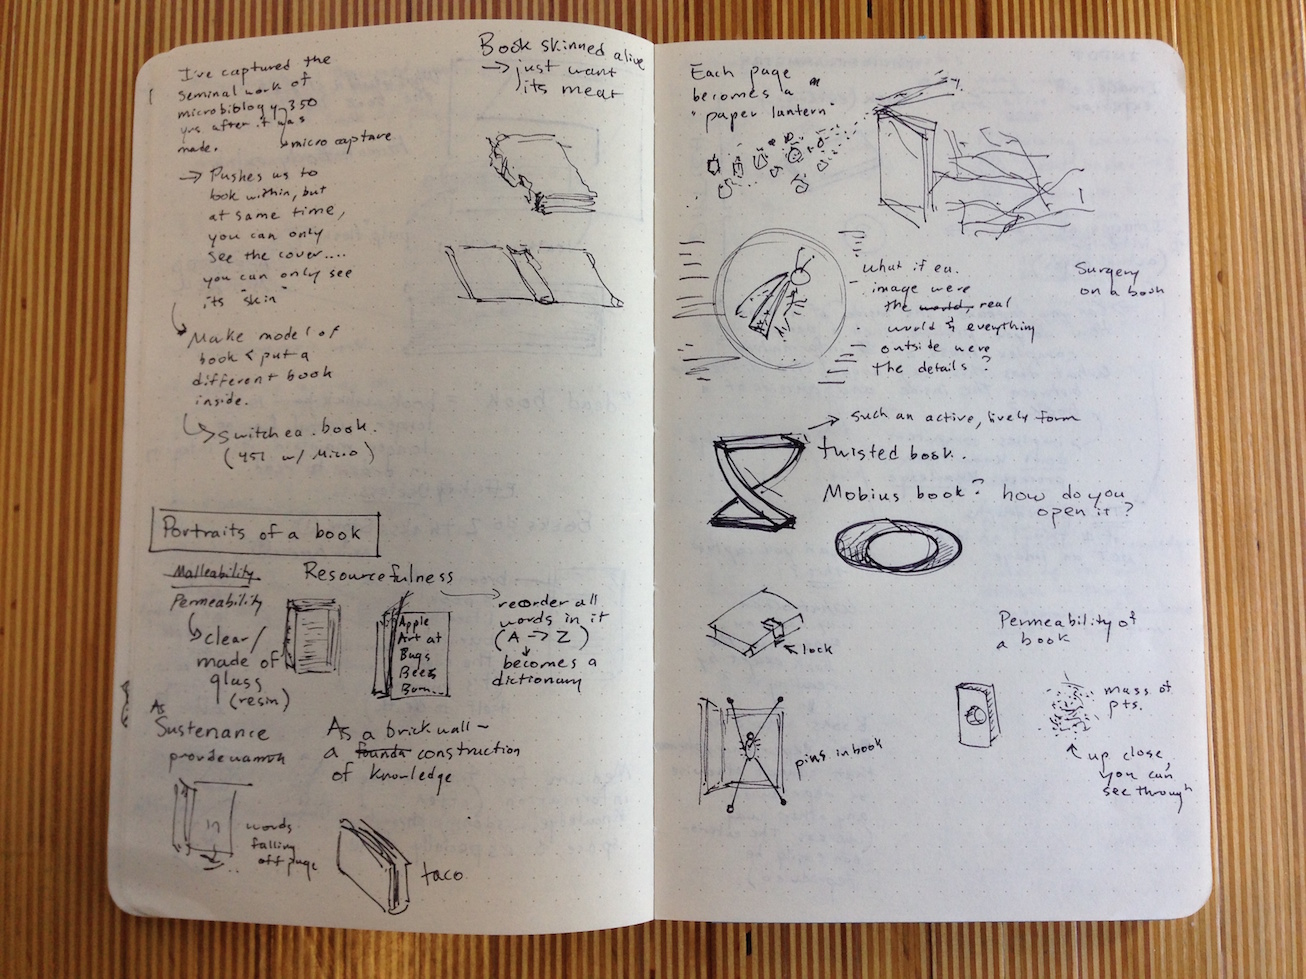 I've captured the
seminal work of
microbiology 350
yrs after it was
made.
micro capture
→ Pushes us to
book within, but
at same time,
you can only
see the cover....
you can only see
its "skin"
Make model of
book & put a
different book
inside.
Switch ea. book.
(451 w/ Micro)
Book skinned alive
→ just want
its meat
Portraits of a book
Malleability
Permeability
clear/
made of
glass
(resin)
Resourcefulness
Apple
Art at
Bugs
Bees
Bum...
reorder all
words in it
(A → Z)
becomes a
dictionary
As
Sustenance
words
falling
off page
As a brick wall –
a founda construction
of knowledge
taco
Each page
becomes a
"paper lantern"
what if ea.
image were
the world, real
world & eveything
outside were
the details?
Surgery
on a book
→ such an active, lively form
twisted book.
Mobius book? how do you
open it?
lock
pins in book
Permeability of
a book
mass of
pts.
up close,
you can
see through